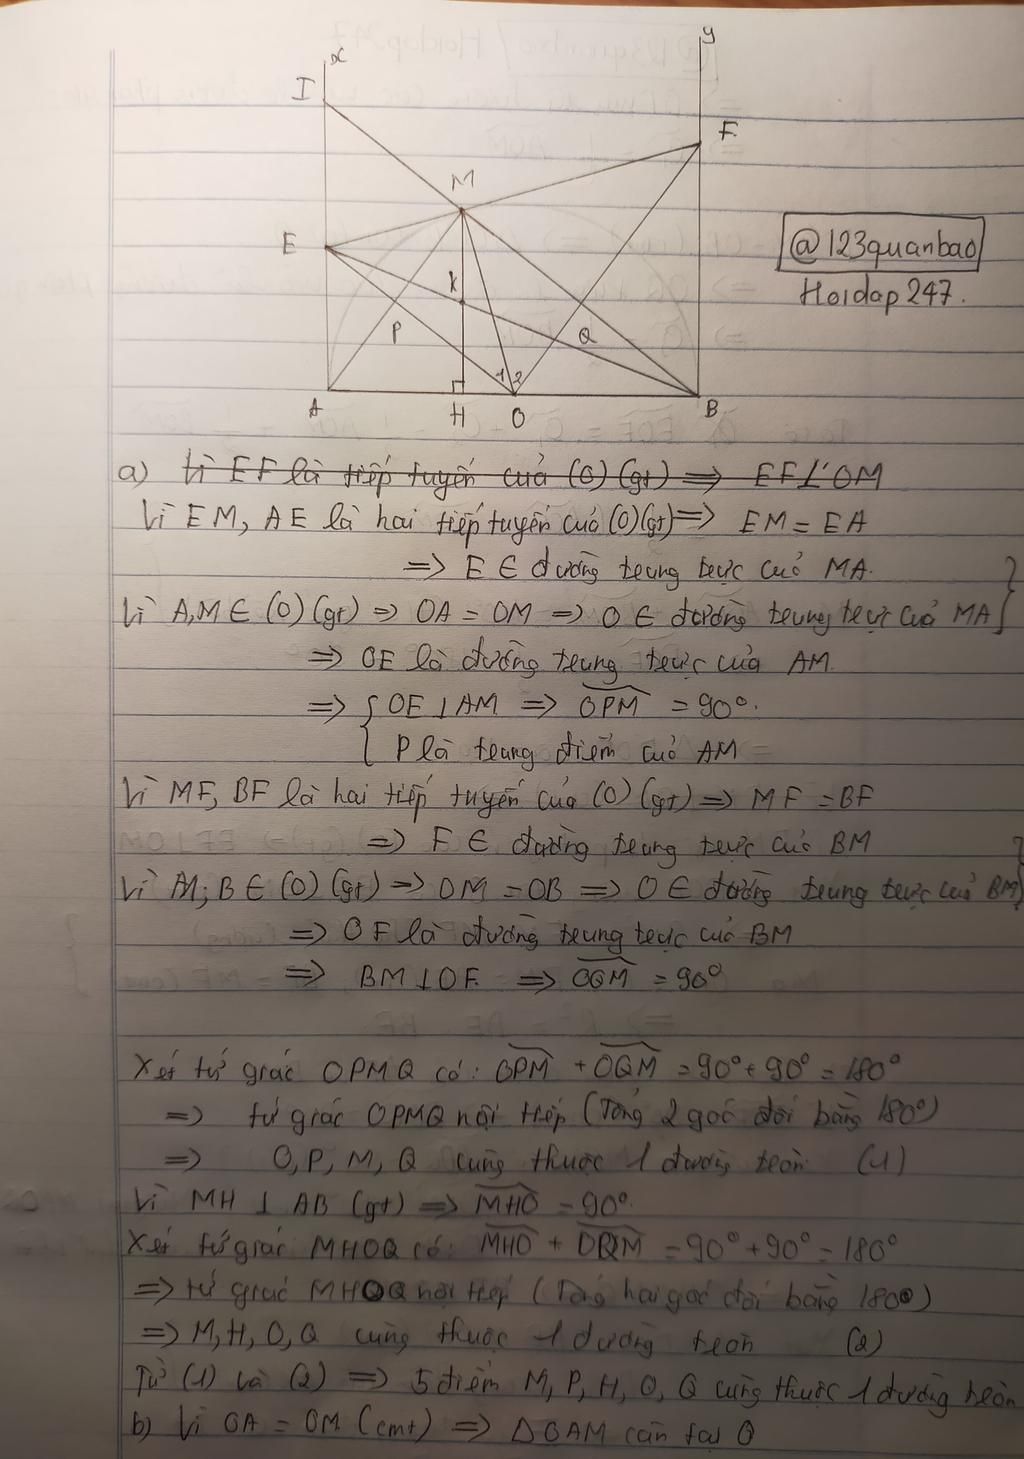 x
y
I
F
M
E
@123quanbao
Hoidap247.
K
P
Q
1 2
A
H
O
B
a) Vì EF là tiếp tuyến của (O) (gt) => EF⊥OM
Vì EM, AE là hai tiếp tuyến của (O) (gt) => EM = EA
=> E ∈ đường trung trực của MA.
Vì A,M ∈ (O) (gt) => OA = OM => O ∈ đường trung trực của MA }
=> OE là đường trung trực của AM.
=> { OE⊥AM => OPM = 90°.
P là trung điểm của AM
Vì MF, BF là hai tiếp tuyến của (O) (gt) => MF = BF
=> F ∈ đường trung trực của BM
Vì M; B ∈ (O) (gt) => OM = OB => O ∈ đường trung trực của BM }
=> OF là đường trung trực của BM
=> BM⊥OF. => OQM = 90°
Xét tứ giác OPMQ có: OPM + OQM = 90° + 90° = 180°
=> tứ giác OPMQ nội tiếp (Tổng 2 góc đối bằng 180°)
=> O, P, M, Q cùng thuộc 1 đường tròn (1)
Vì MH ⊥ AB (gt) => MHO = 90°.
Xét tứ giác MHOQ có: MHO + OQM = 90° + 90° = 180°
=> tứ giác MHOQ nội tiếp (Tổng hai góc đối bằng 180°)
=> M, H, O, Q cùng thuộc 1 đường tròn (2)
Từ (1) và (2) => 5 điểm M, P, H, O, Q cùng thuộc 1 đường tròn
b) Vì OA = OM (cmt) => ΔOAM cân tại O